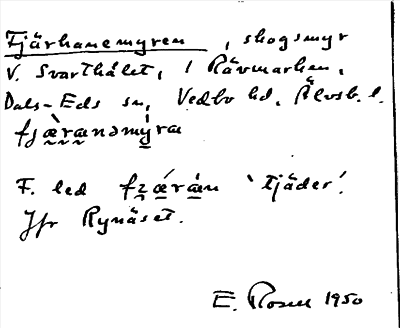 Tjärhanemyren, skogsmyr
V. Svarthålet, i Rävmarken,
Dals-Eds sn, Vedbo hd, Älvsb. l.
fjæ̀rænəmýra
F. led fzǽræn 'tjäder'.
Jfr Rynäset.
E. Rosell 1950